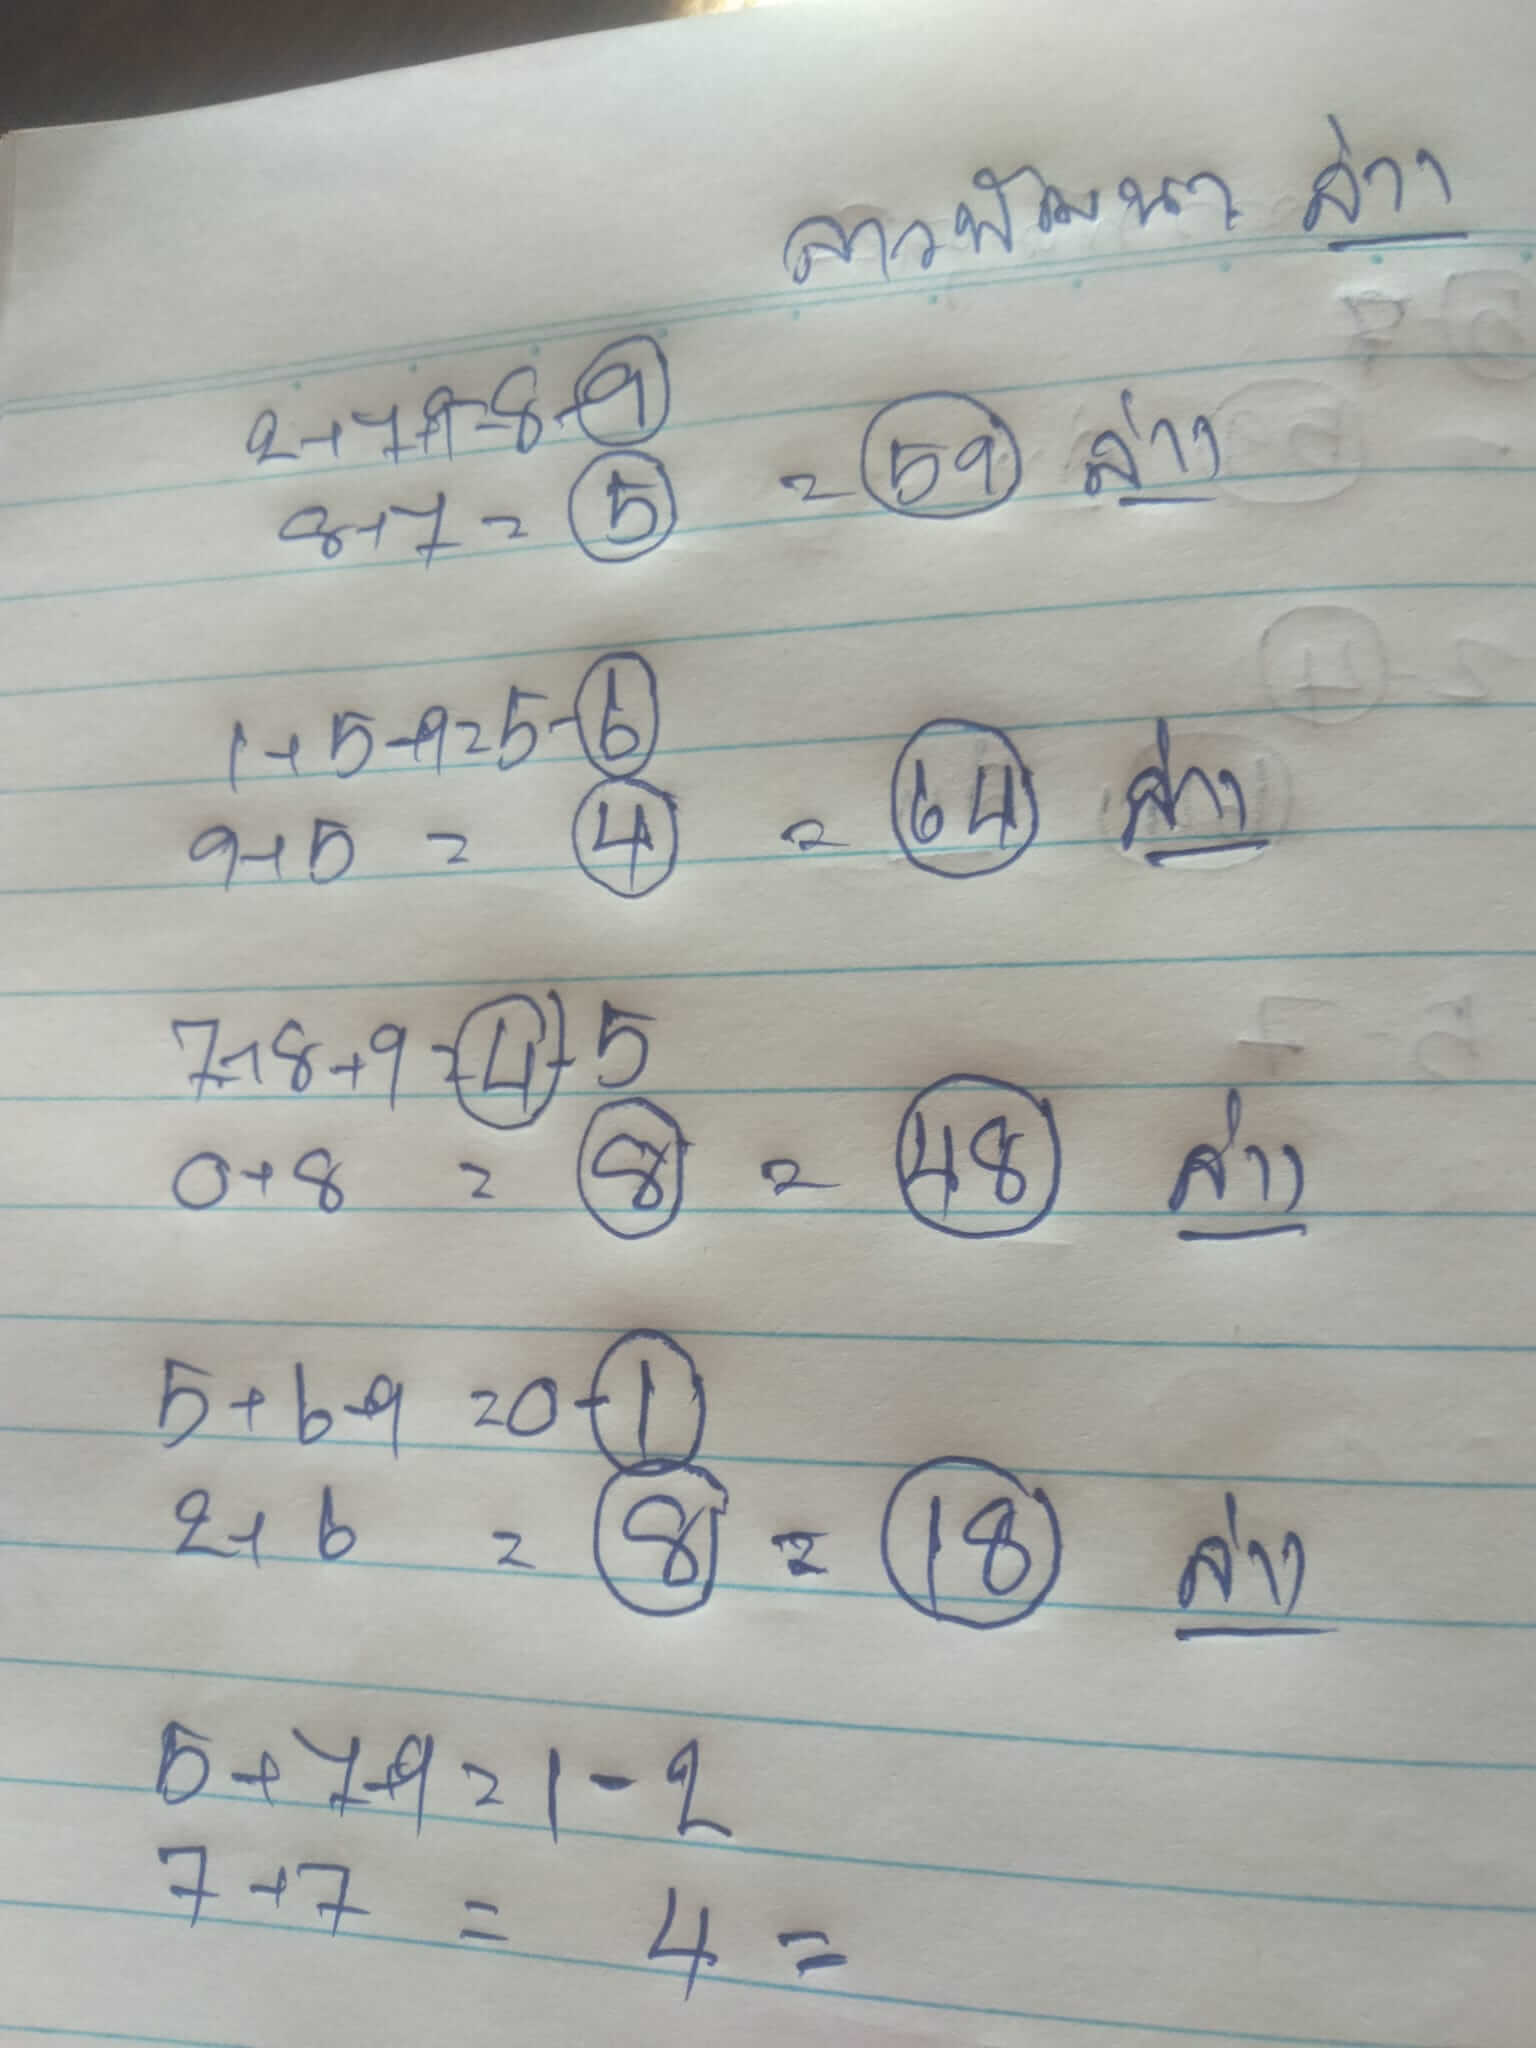 ลาวพัฒนา ล่าง
2+7+9=8-9
8+7=5 =59 ล่าง
1+5+9=5-6
9+5 = 4 = 64 ล่าง
7+8+9=4-5
0+8 = 8 = 48 ล่าง
5+6+9 =0-1
2+6 = 8 = 18 ล่าง
5+7+9=1-2
7+7 = 4 =